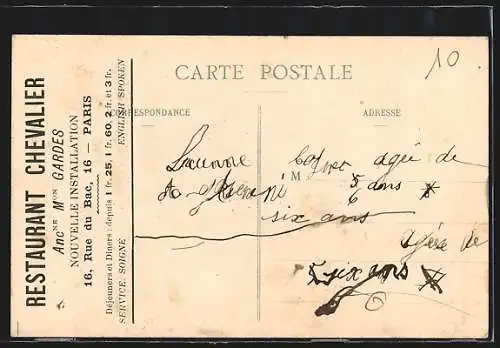 RESTAURANT CHEVALIER
Anc^NE M^ON GARDES
NOUVELLE INSTALLATION
16, Rue du Bac, 16 — PARIS
Déjeuners et Dîners : depuis 1 fr. 25, 1 fr. 60, 2 fr. et 3 fr.
SERVICE SOIGNÉ ENGLISH SPOKEN
10
CARTE POSTALE
CORRESPONDANCE
ADRESSE
agée de
M 5 ans
6
six ans
agée de
5 six ans
6